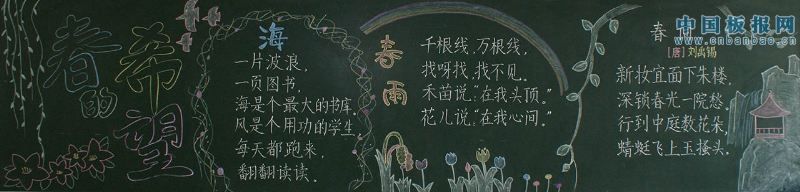 春的希望
海
一片波浪,
一页图书.
海是个最大的书库.
风是个用功的学生.
每天都跑来,
翻翻读读.
春雨
千根线,万根线,
找呀找,找不见。
禾苗说:“在我头顶。”
花儿说:“在我心间。”
春
[唐]刘禹锡
新妆宜面下朱楼,
深锁春光一院愁.
行到中庭数花朵,
蜻蜓飞上玉搔头.
中国板报网
www.cnbanbao.cn